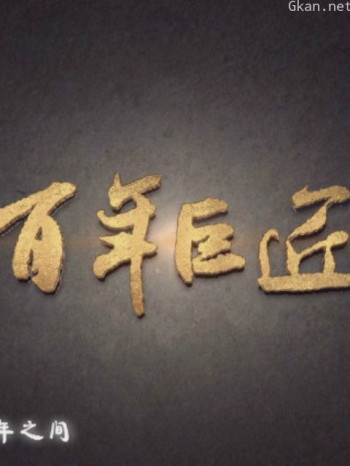 Gkan.net
百年巨匠
年之间